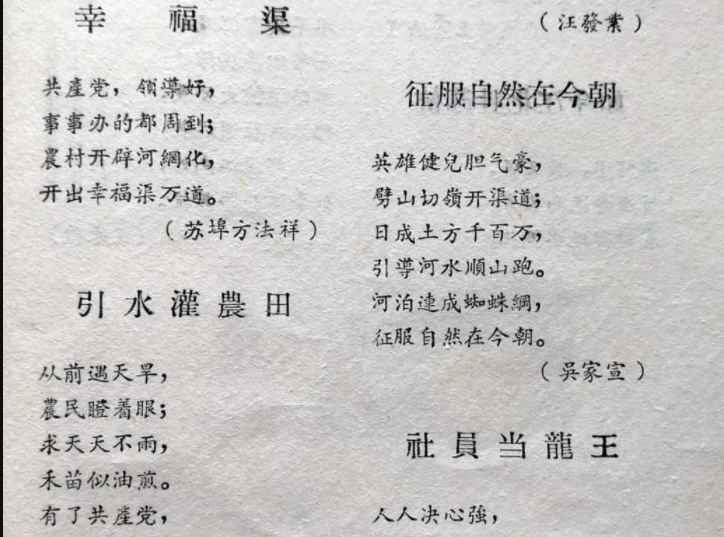 幸福渠
共產党，领導好，
事事办的都周到；
農村开辟河綱化，
开出幸福渠万道。
（苏埠方法祥）
引水灌農田
从前遇天旱，
農民瞪着眼；
求天天不雨，
禾苗似油煎。
有了共產党，
（汪發業）
征服自然在今朝
英雄健兒胆气豪，
劈山切嶺开渠道；
日成土方千百万，
引導河水順山跑。
河泊連成蜘蛛綱，
征服自然在今朝。
（吳家宣）
社員当龍王
人人决心強，